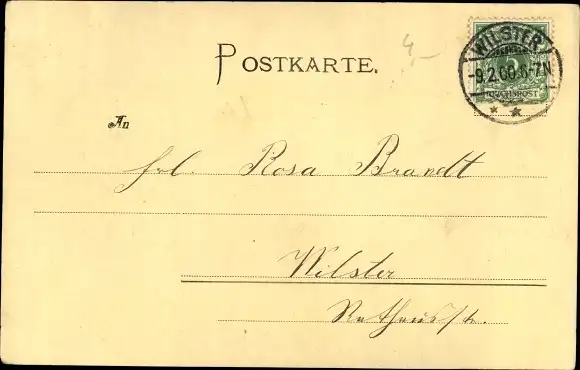 4,-
WILSTER
-9.2.00.6-7N
REICHSPOST
POSTKARTE.
An
Frl. Rosa Brandt
Wilster
Rathausstr.